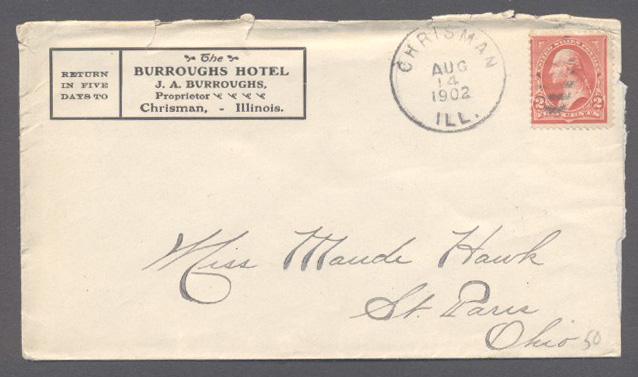 RETURN
IN FIVE
DAYS TO
The
BURROUGHS HOTEL
J. A. BURROUGHS,
Proprietor
Chrisman, - Illinois.
CHRISMAN
AUG
14
1902
ILL.
2 2
Miss Maude Hawk
St. Paris
Ohio
50